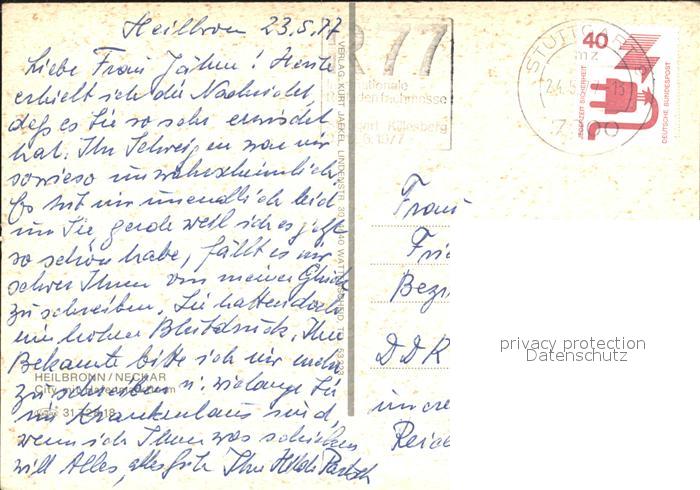 Heilbronn 23.5.77
Liebe Frau Jähne! Heute
erhielt ich die Nachricht,
daß es Sie so sehr erwischt
hat. Ihr Schweigen war mir
sowieso unwahrscheinlich.
Es tut mir unendlich leid
um Sie, gerade weil ich es jetzt
so schön habe, fällt es mir
schwer Ihnen von meinem Glück
zu schreiben. Sie hatten doch
nie hohen Blutdruck. Ihre
Bekannte bitte ich mir mehr
zu schreiben u. wie lange Sie
im Krankenhaus sind,
wenn ich Ihnen was schicken
will Alles, alles gute Ihre Hilde
HEILBRONN/NECKAR
City mit
31
VERLAG KURT JAEKEL, LINDENSTR. 30, WATTENSCHEID, TEL.
R 77
Killesberg
1977
STUTTGART
mz
24.5.77-13
7000
40
JEDERZEIT SICHERHEIT
DEUTSCHE BUNDESPOST
Frau
Bezi
DDR
privacy protection
Datenschutz